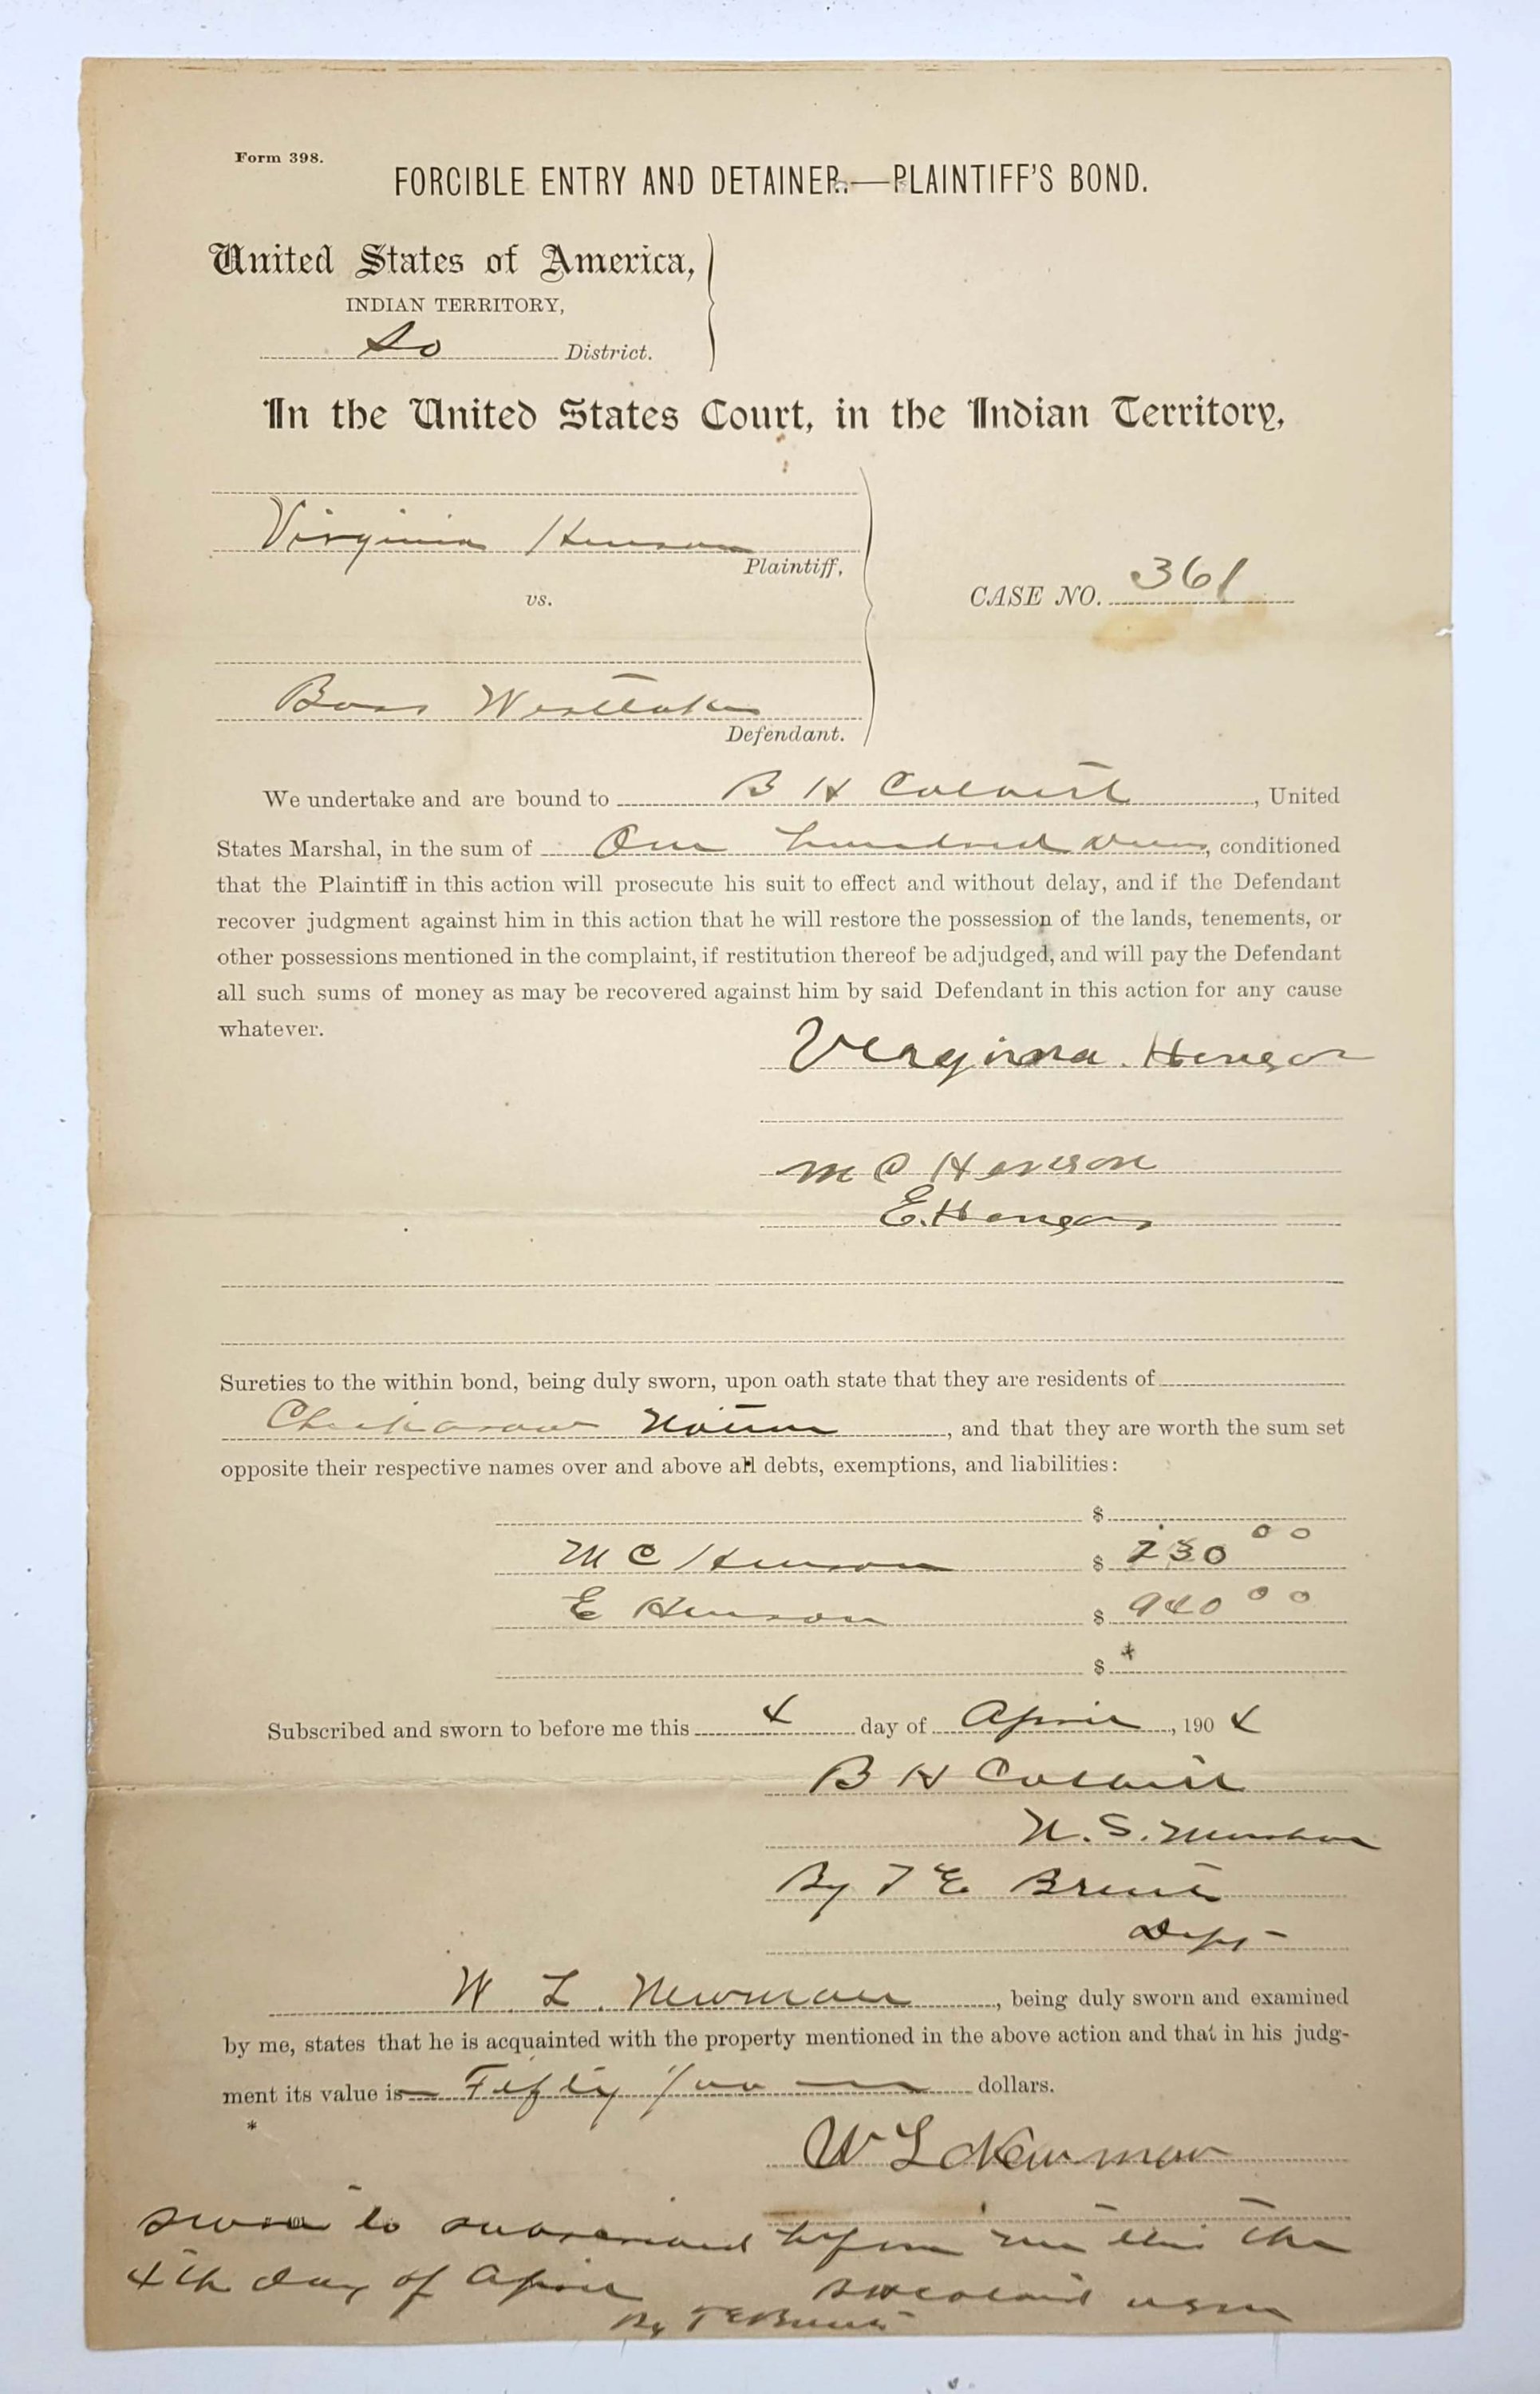 Form 398.
FORCIBLE ENTRY AND DETAINER.—PLAINTIFF'S BOND.
United States of America,
INDIAN TERRITORY,
So District.
In the United States Court, in the Indian Territory,
Virginia Henson
Plaintiff,
vs.
CASE NO. 361
Boss Westlake
Defendant.
We undertake and are bound to B H Colbert, United
States Marshal, in the sum of One hundred, conditioned
that the Plaintiff in this action will prosecute his suit to effect and without delay, and if the Defendant
recover judgment against him in this action that he will restore the possession of the lands, tenements, or
other possessions mentioned in the complaint, if restitution thereof be adjudged, and will pay the Defendant
all such sums of money as may be recovered against him by said Defendant in this action for any cause
whatever.
Virginna Henson
M C Henson
E. Henson
Sureties to the within bond, being duly sworn, upon oath state that they are residents of
Chickasaw Nation, and that they are worth the sum set
opposite their respective names over and above all debts, exemptions, and liabilities:
$
M C Henson $ 230 00
E Henson $ 940 00
$ *
Subscribed and sworn to before me this 4 day of April, 1904
B H Colbert
U. S. Marshal
By T E Brents
Dept
W. L. Newman, being duly sworn and examined
by me, states that he is acquainted with the property mentioned in the above action and that in his judg-
ment its value is Fifty /00 dollars.
*
W L Newman
Sworn to subscribed before me this the
4th day of April BH Colbert USM
By T E Brents